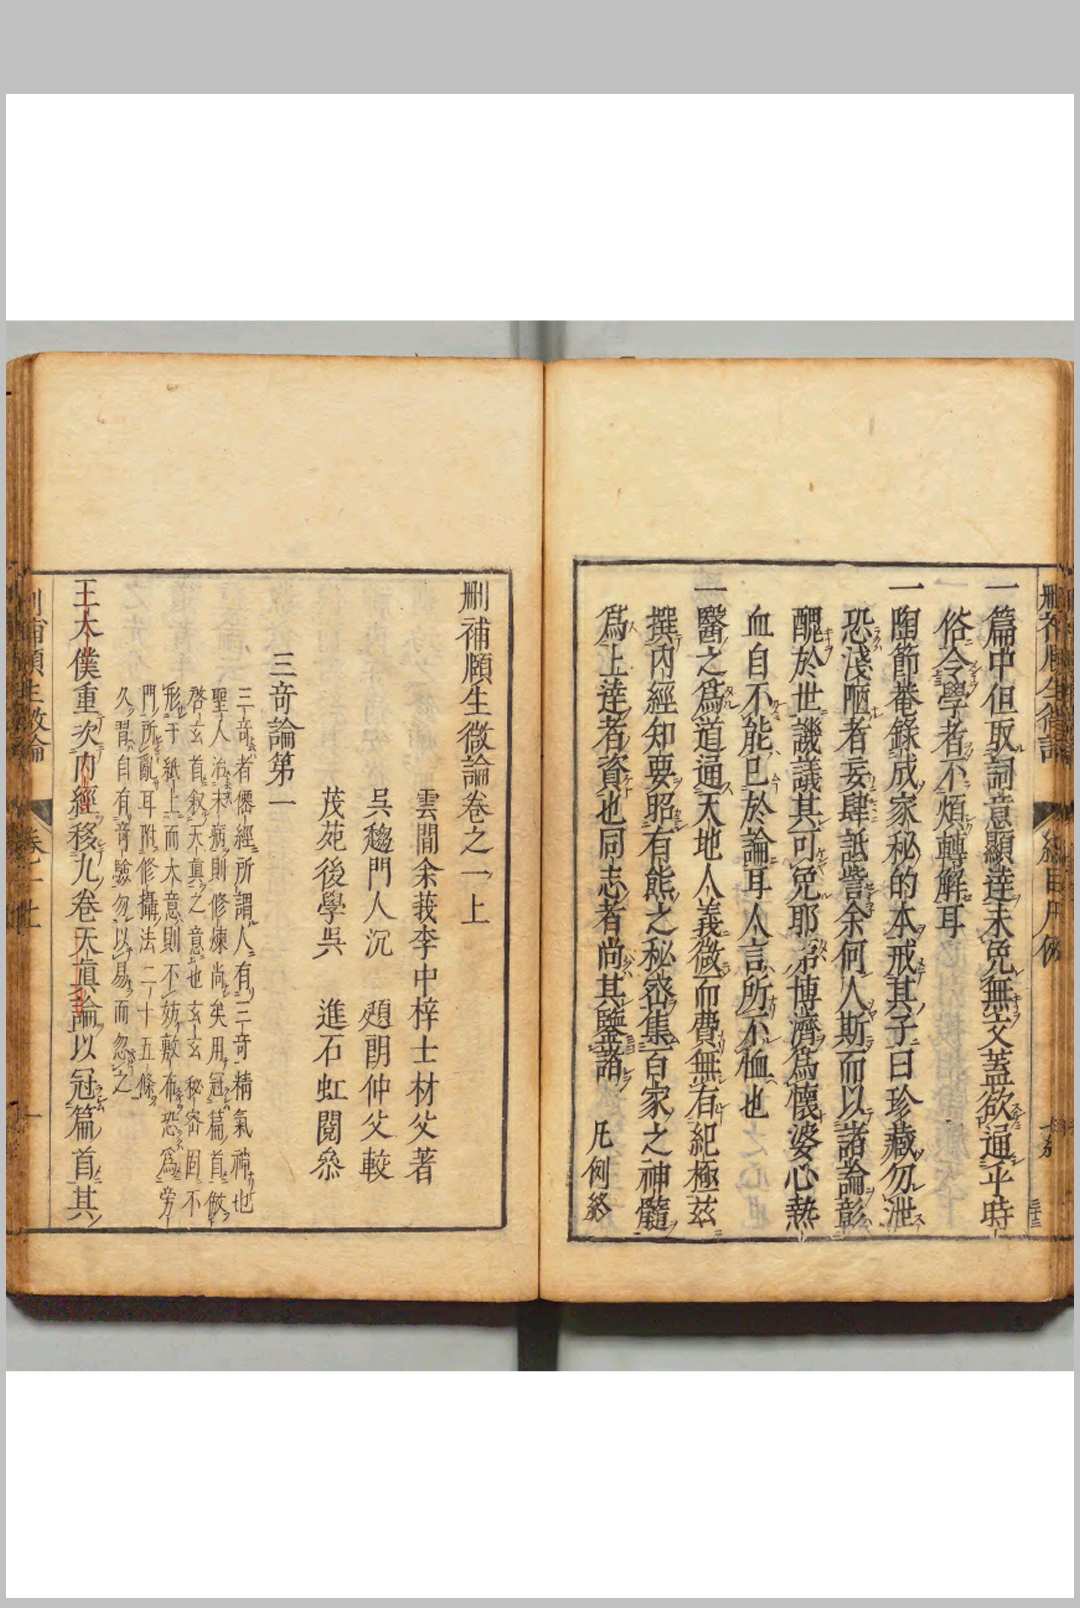 一篇中但取詞意顯達未免無文蓋欲通乎時
俗令學者不煩轉解耳
一陶節菴錄成家秘的本戒其子曰珍藏勿泄
恐淺陋者妄肆詆訾余何人斯而以諸論彰
醜於世譏議其可免耶第博濟爲懷婆心熱
血自不能已於論耳人言所不恤也
一醫之爲道通天地人義微而費無有紀極茲
撰內經知要昭有熊之秘密集百家之神髓
爲上達者資也同志者尚其鑒諸
凡例終
刪補頤生微論卷之一上
雲間余莪李中梓士材父著
吳趨門人沉 頲朗仲父較
茂苑後學吳 進石虹閱叅
三奇論第一
三奇者僊經所謂人有三奇精氣神也
聖人治未病則修煉尚矣用冠篇首倣
啓玄首叙天眞之意也玄玄秘密固不
形于紙上而大意則不妨敷布恐爲旁
門所亂耳附修攝法二十五條
久習自有奇驗勿以易而忽之
王太僕重次內經移九卷天眞論以冠篇首其
刪補頤生微論
卷之一上
一